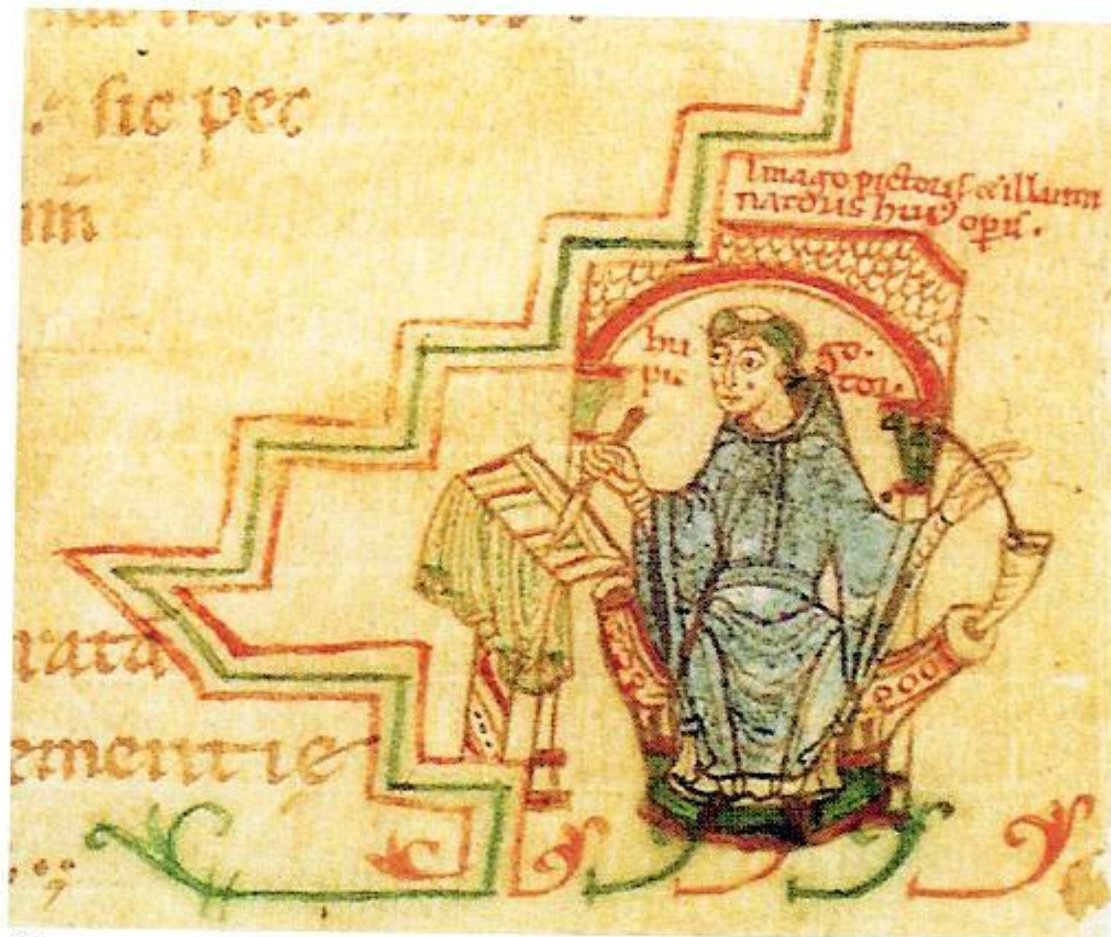 sic pec
Imago pictoris & illumi
natoris huiꝰ oꝑis.
hu go.
pic tor.
rata
ementie